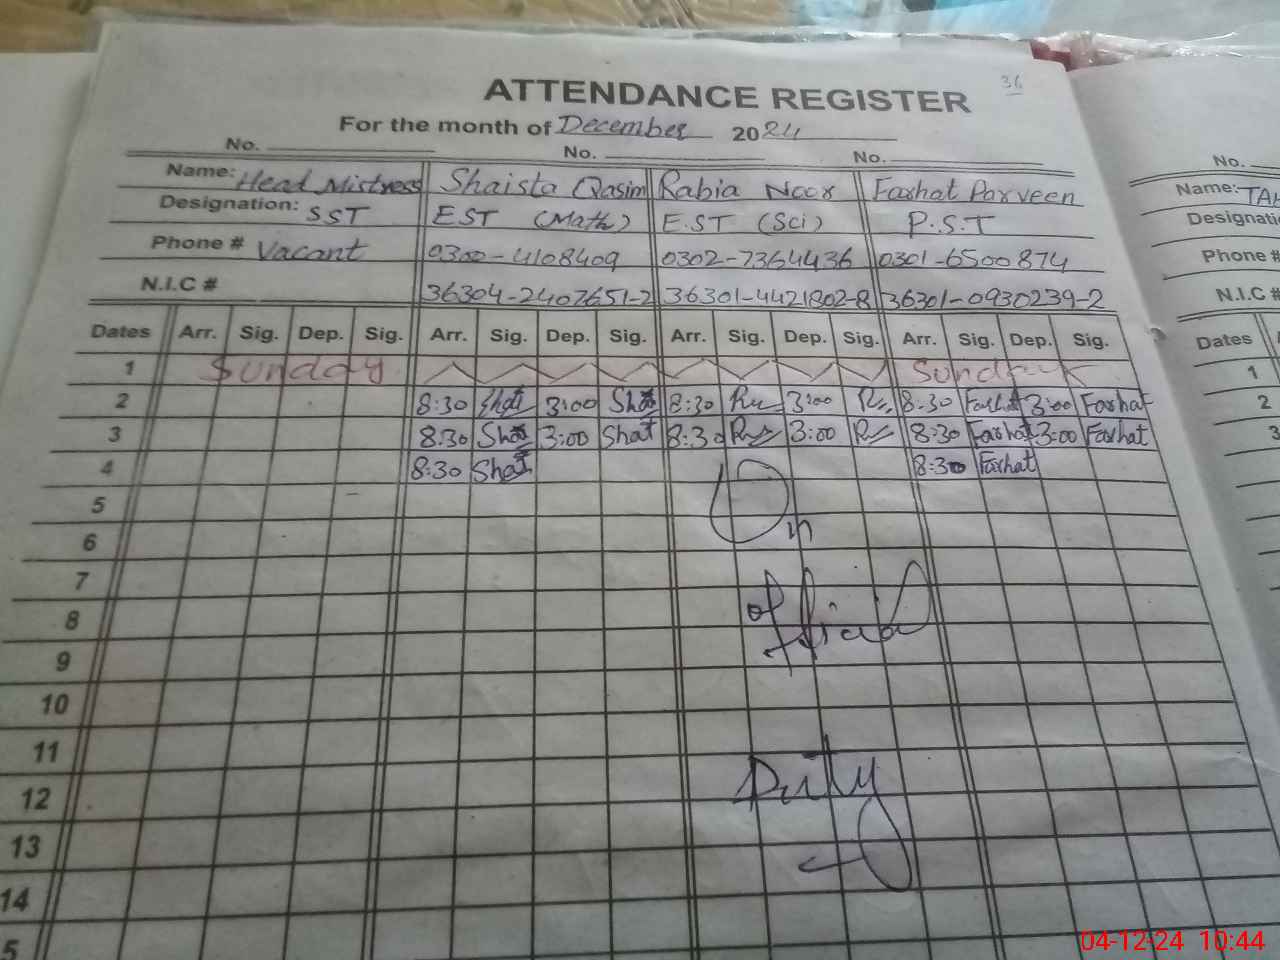 36
ATTENDANCE REGISTER
For the month of December 2024
No. No. No. No.
Name: Head Mistress Shaista Qasim Rabia Noor Farhat Parveen Name:
Designation: SST EST (Math) E.ST (Sci) P.S.T
Phone # Vacant 0300-4108409 0302-7364436 0301-6500874 Phone #
N.I.C # 36304-2407651-2 36301-4421802-8 36301-0930239-2 N.I.C #
Dates Arr. Sig. Dep. Sig. Arr. Sig. Dep. Sig. Arr. Sig. Dep. Sig. Arr. Sig. Dep. Sig. Dates
1 Sunday Sunday 1
2 8:30 3:00 8:30 3:00 8:30 Farhat 3:00 Farhat 2
3 8:30 3:00 8:30 3:00 8:30 Farhat 3:00 Farhat 3
4 8:30 8:30 Farhat
5
On
6
7
8
official
9
10
11
12
Duty
13
14
04-12-24 10:44